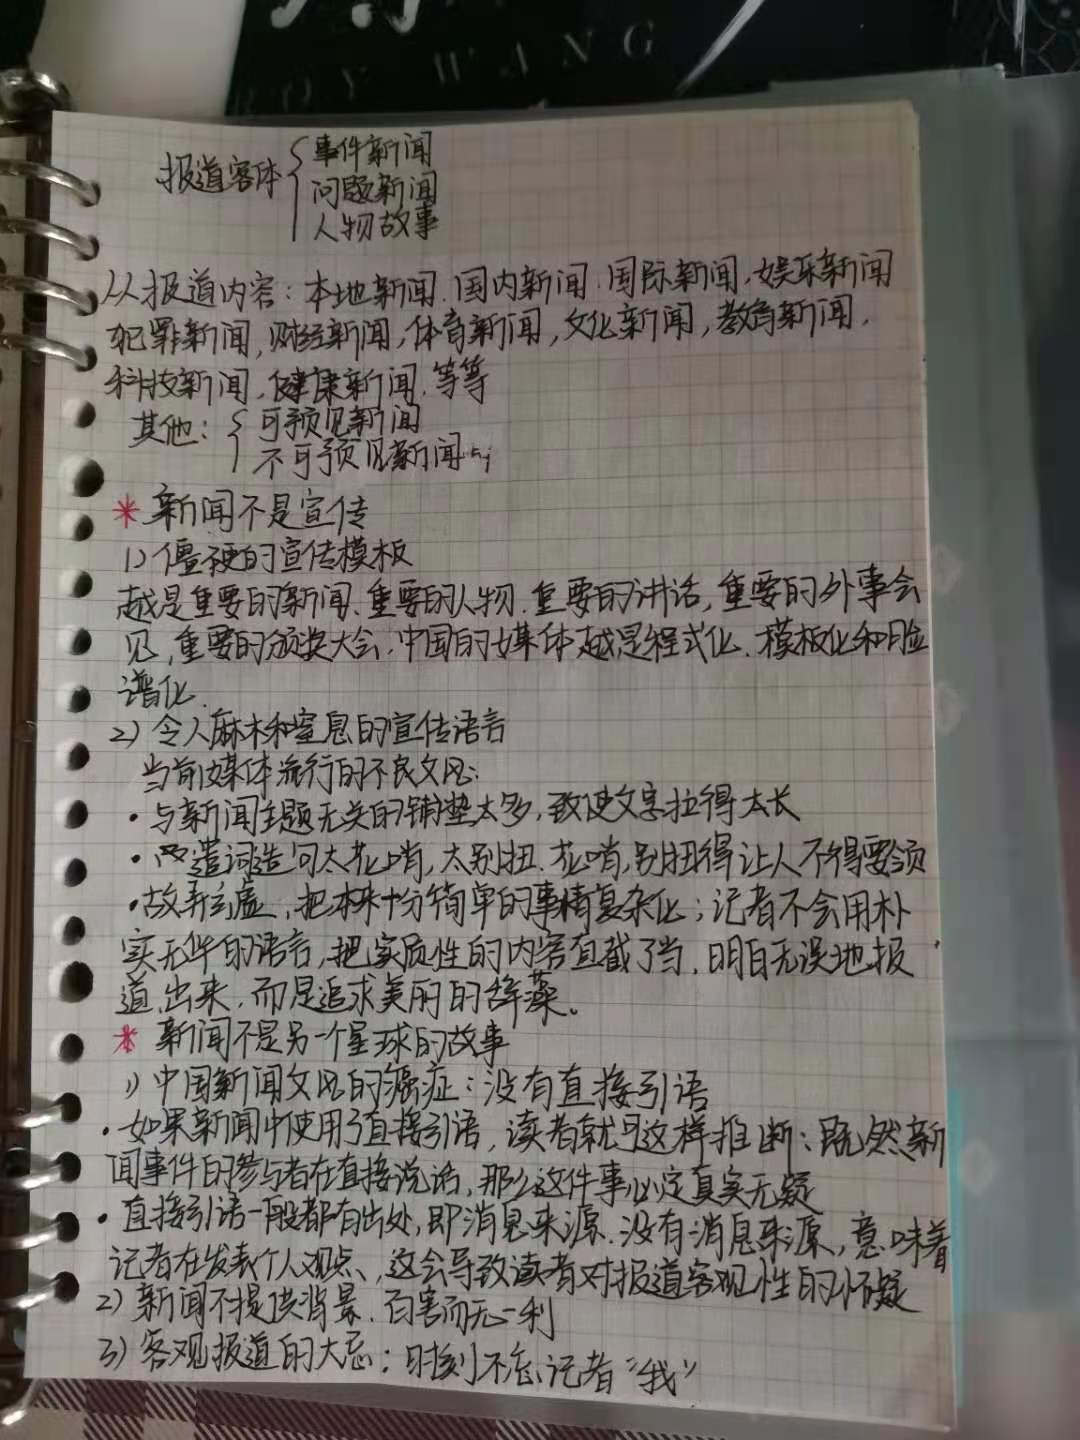 OY WANG
报道客体
事件新闻
问题新闻
人物故事
从报道内容：本地新闻、国内新闻、国际新闻，娱乐新闻
犯罪新闻，财经新闻，体育新闻，文化新闻，教育新闻，
科技新闻，健康新闻，等等
其他：
可预见新闻
不可预见新闻
* 新闻不是宣传
1) 僵硬的宣传模板
越是重要的新闻、重要的人物、重要的讲话，重要的外事会
见，重要的颁奖大会，中国的媒体越是程式化、模板化和脸
谱化.
2) 令人麻木和窒息的宣传语言
当前媒体流行的不良文风：
·与新闻主题无关的铺垫太多，致使文字拉得太长
·遣词造句太花哨，太别扭、花哨，别扭得让人不得要领
·故弄玄虚，把本来十分简单的事情复杂化；记者不会用朴
实无华的语言，把实质性的内容直截了当，明白无误地报
道出来，而是追求美丽的辞藻。
* 新闻不是另一个星球的故事
1) 中国新闻文风的癌症：没有直接引语
·如果新闻中使用了直接引语，读者就可这样推断：既然新
闻事件的参与者在直接说话，那么这件事必定真实无疑
·直接引语一般都有出处，即消息来源.没有消息来源，意味着
记者在发表个人观点、这会导致读者对报道客观性的怀疑
2) 新闻不提供背景，百害而无一利
3) 客观报道的大忌：时刻不忘记者“我”